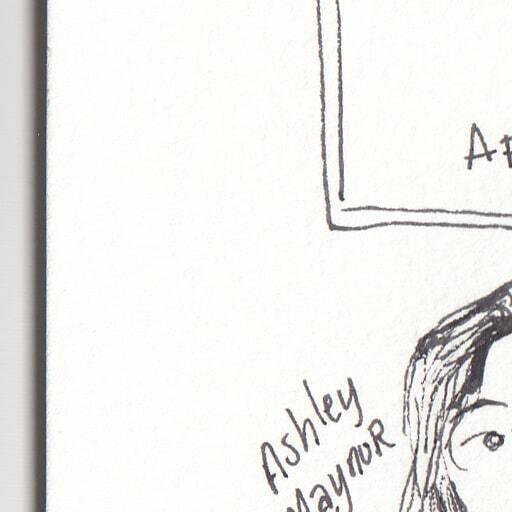 Ashley
Maynor